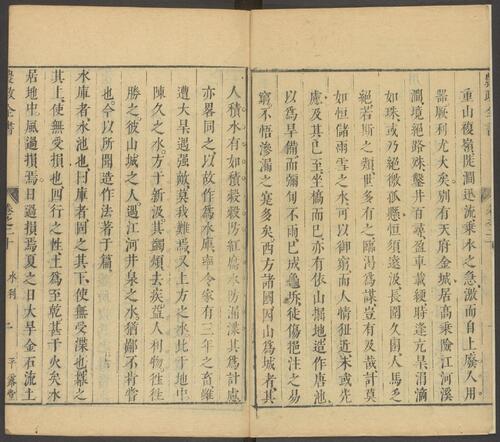 重山複嶺陡澗迅流乘水之急激而自上廢人用
器厥利尤大矣別有天府金城居高乘險江河溪
澗境絕路殊鑿井百尋盈車載綆時逢亢旱涓滴
如珠或乃絕徼孤懸恒須遠汲長圍久困人馬乏
絕若斯之類世多有之臨渴為謀豈有及哉計莫
如恒儲雨雪之水可以御窮而人情狃近未或先
慮及其已至坐槁而已亦有依山掘地造作唐池
以為旱備而彌旬不雨已成龜坼徒傷挹注之易
窮不悟滲漏之寔多矣西方諸國因山為城者其
人積水有如積穀穀防紅腐水防漏渫其為計慮
亦畧同之以故作為水庫率令家有三年之畜雖
遭大旱遇強敵莫我難焉又上方之水比于地中
陳久之水方于新汲其蠲煩去疾益人利物徃徃
勝之彼山城之人遇江河井泉之水猶鄙不肯嘗
也今以所聞造作法著于篇
水庫者水池也曰庫者固之其下使無受渫也羃之
其上使無受損也四行之性土為至乾甚于火矣水
居地中風過損焉日過損焉夏之日大旱金石流土
農政全書
卷之二十
水利
二
平露堂